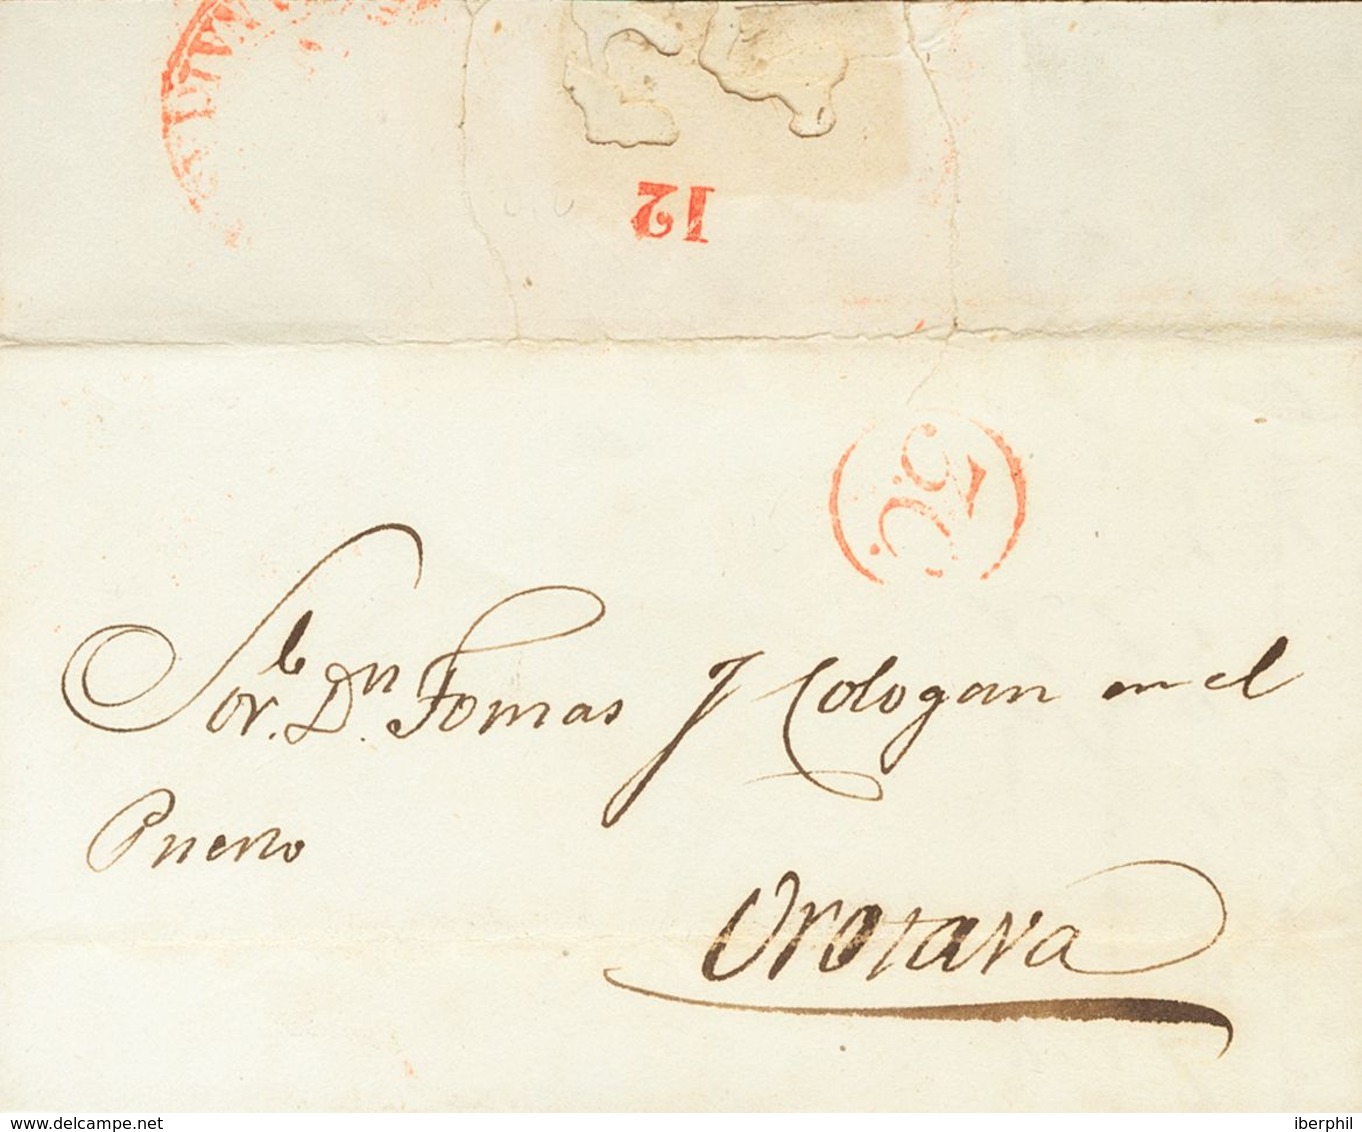 12
Sor. Dn. Tomas J Cologan en el
Puerto
Orotava
www.delcampe.net
iberphil